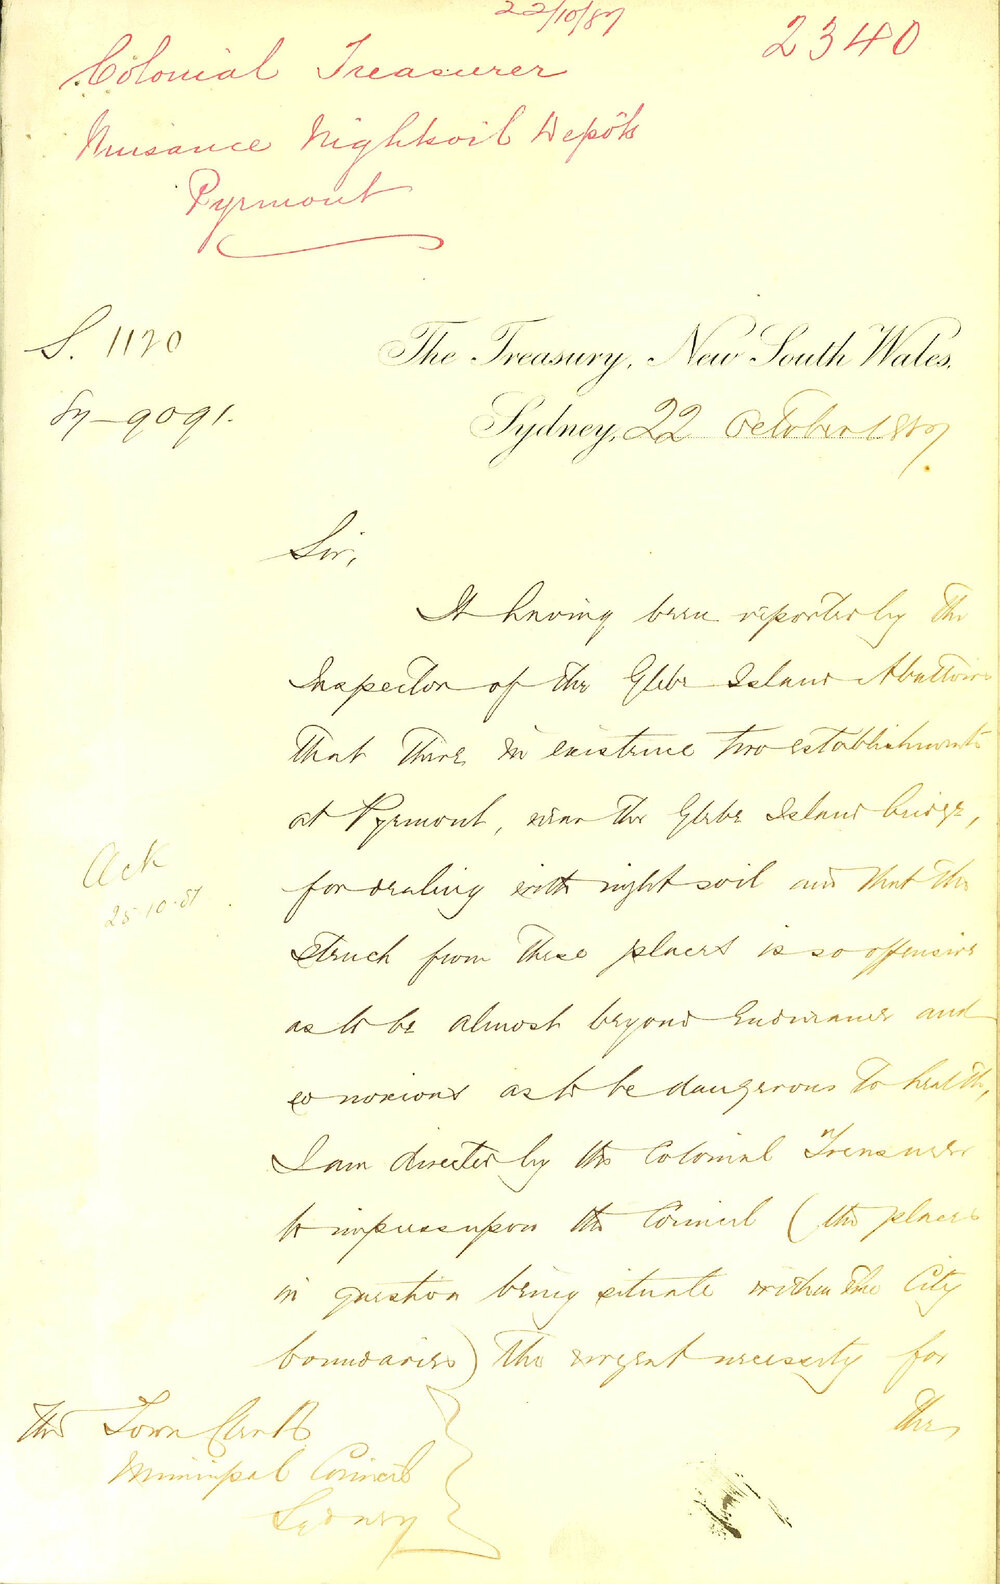 22/10/87
2340
Colonial Treasurer
Nuisance Nightsoil Depôts
Pyrmont
S. 1120
87-9091.
The Treasury, New South Wales.
Sydney, 22 October 1887
Sir,
It having been reported by the
Inspector of the Glebe Island Abattoirs
that there in existence two establishments
at Pyrmont, near the Glebe Island bridge,
for dealing with night soil and that the
stench from these places is so offensive
as to be almost beyond endurance and
so noxious as to be dangerous to health,
I am directed by the Colonial Treasurer
to impress upon the Council (the places
in question being situate within the City
boundaries) the urgent necessity for
the
Ack
25-10-87
The Town Clerk
Municipal Council
Sydney